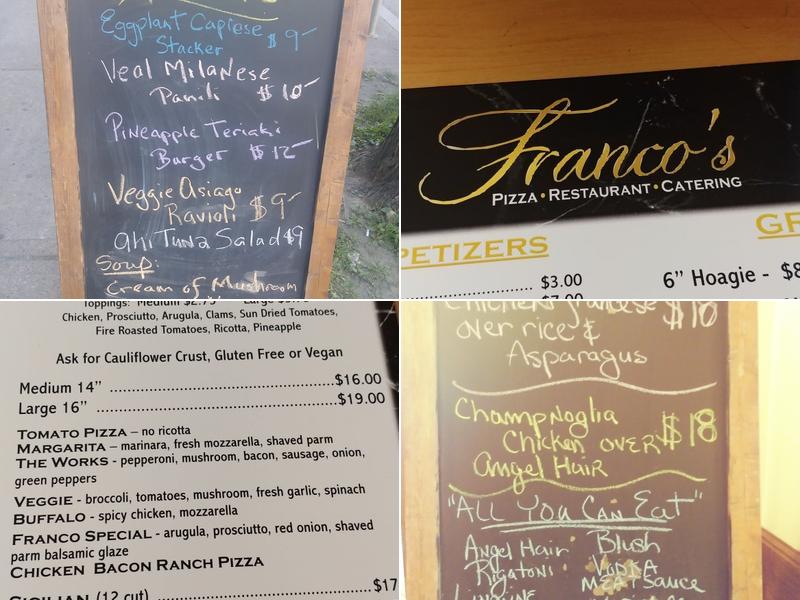 Eggplant Caprese $9
Stacker
Veal Milanese
Panili $10
Pineapple Teriaki
Burger $12
Veggie Asiago
Ravioli $9
Ahi Tuna Salad $9
Soup:
Cream of Mushroom
Franco's
PIZZA • RESTAURANT • CATERING
PETIZERS
GR
$3.00
6" Hoagie - $8
$7.00
Toppings: Medium $2.75
Chicken, Prosciutto, Arugula, Clams, Sun Dried Tomatoes,
Fire Roasted Tomatoes, Ricotta, Pineapple
Ask for Cauliflower Crust, Gluten Free or Vegan
Medium 14" ........................................$16.00
Large 16" ..........................................$19.00
TOMATO PIZZA – no ricotta
MARGARITA – marinara, fresh mozzarella, shaved parm
THE WORKS - pepperoni, mushroom, bacon, sausage, onion,
green peppers
VEGGIE - broccoli, tomatoes, mushroom, fresh garlic, spinach
BUFFALO - spicy chicken, mozzarella
FRANCO SPECIAL - arugula, prosciutto, red onion, shaved
parm balsamic glaze
CHICKEN BACON RANCH PIZZA
SICILIAN (12 cut) ........................................$17
Chicken Francese $18
over rice &
Asparagus
Champnoglia
Chicken over $18
Angel Hair
"All You Can Eat"
Angel Hair Blush
Rigatoni Vodka
Meat Sauce
Linguine